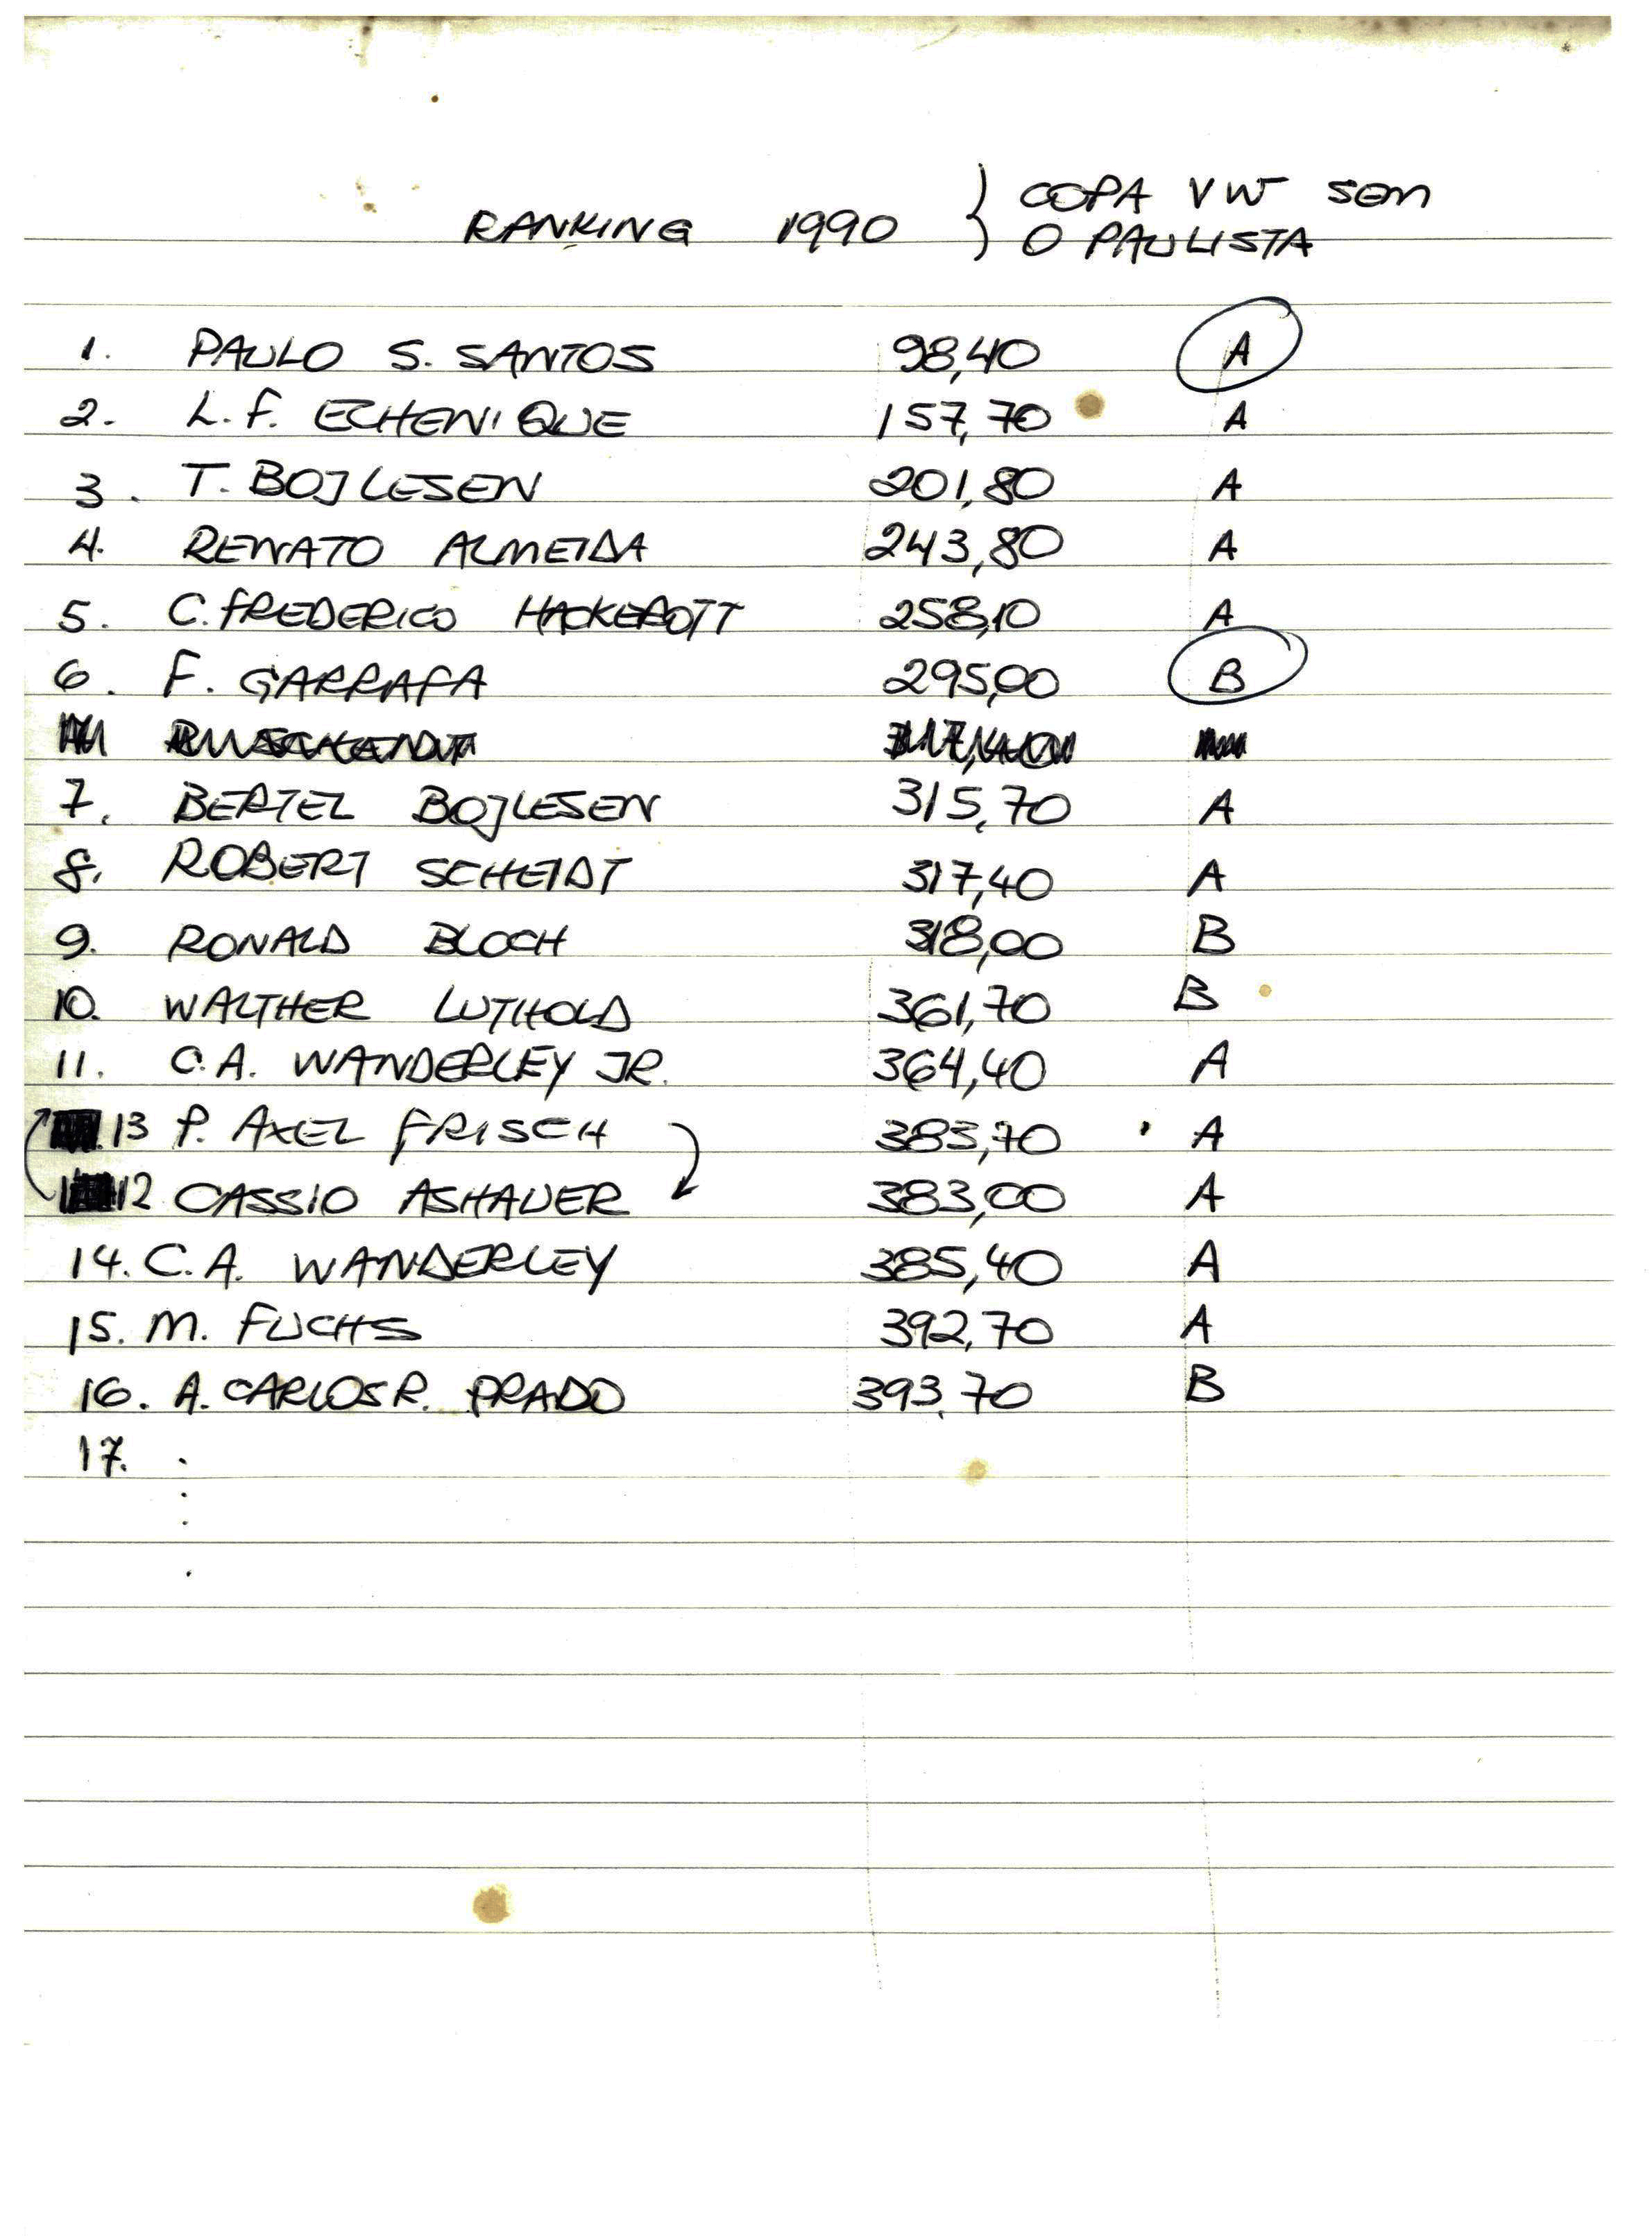 RANKING 1990 } COPA VW SEM
O PAULISTA
1. PAULO S. SANTOS 98,40 A
2. L.F. ECHENIQUE 157,70 A
3. T. BOJLESEN 201,80 A
4. RENATO ALMEIDA 243,80 A
5. C. FREDERICO HACKEROTT 258,10 A
6. F. GARRAFA 295,00 B
7. BERTEL BOJLESEN 315,70 A
8. ROBERT SCHEIDT 317,40 A
9. RONALD BLOCH 318,00 B
10. WALTHER LUTHOLD 361,70 B
11. C.A. WANDERLEY JR. 364,40 A
13 P. AXEL FRISCH 383,70 A
12 CASSIO ASHAUER 383,00 A
14. C.A. WANDERLEY 385,40 A
15. M. FUCHS 392,70 A
16. A. CARLOS R. PRADO 393,70 B
17.